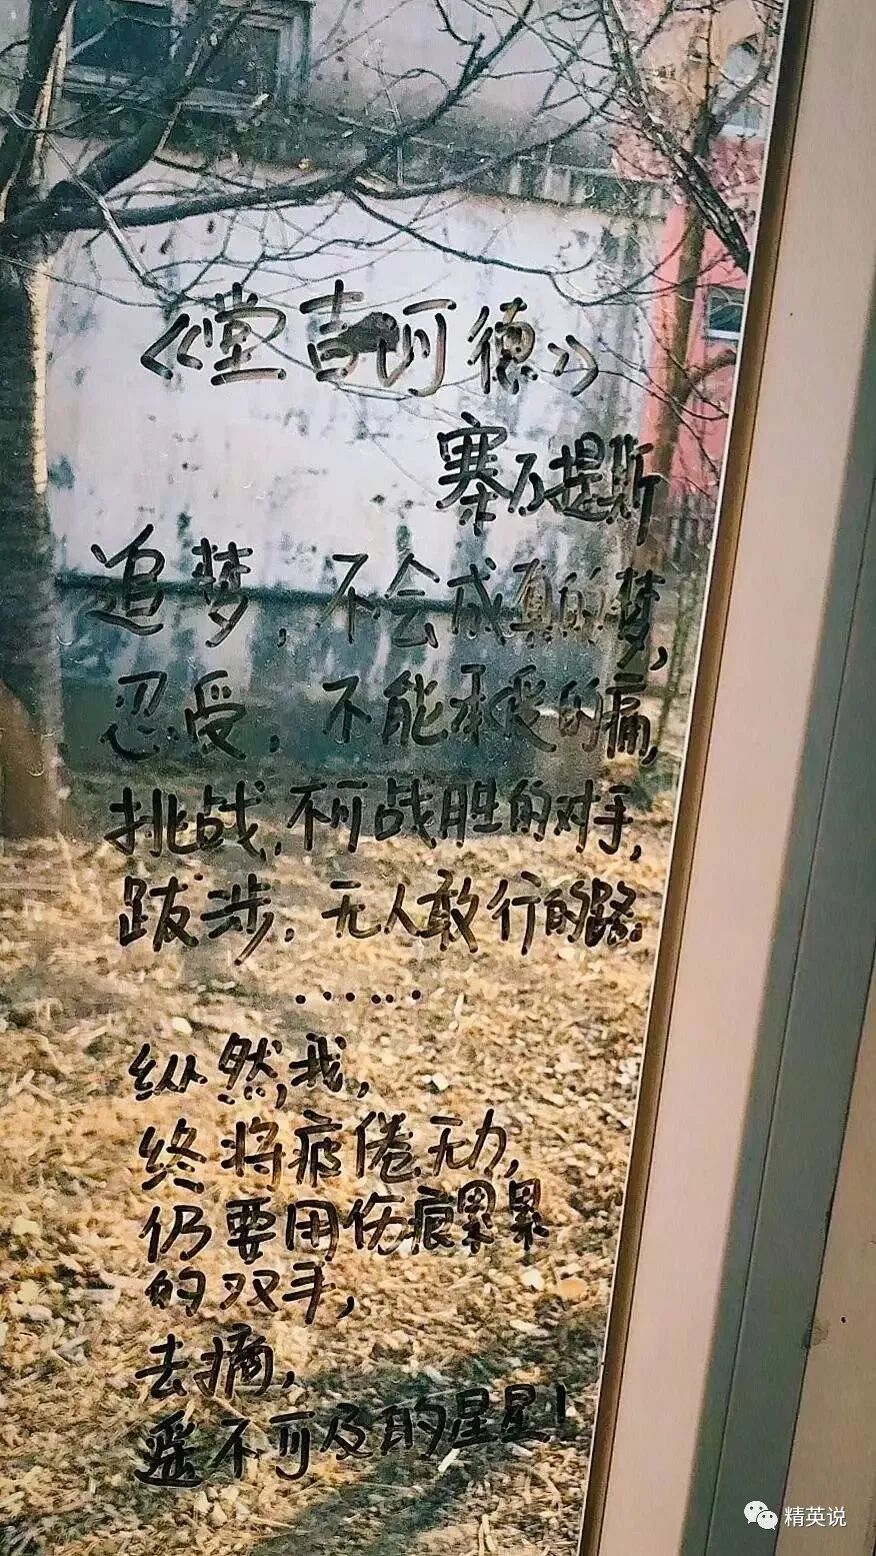 《堂吉诃德》
塞万提斯
追梦，不会成真的梦，
忍受，不能承受的痛，
挑战，不可战胜的对手，
跋涉，无人敢行的路。
……
纵然，我，
终将疲倦无力，
仍要用伤痕累累
的双手，
去摘，
遥不可及的星星！
精英说